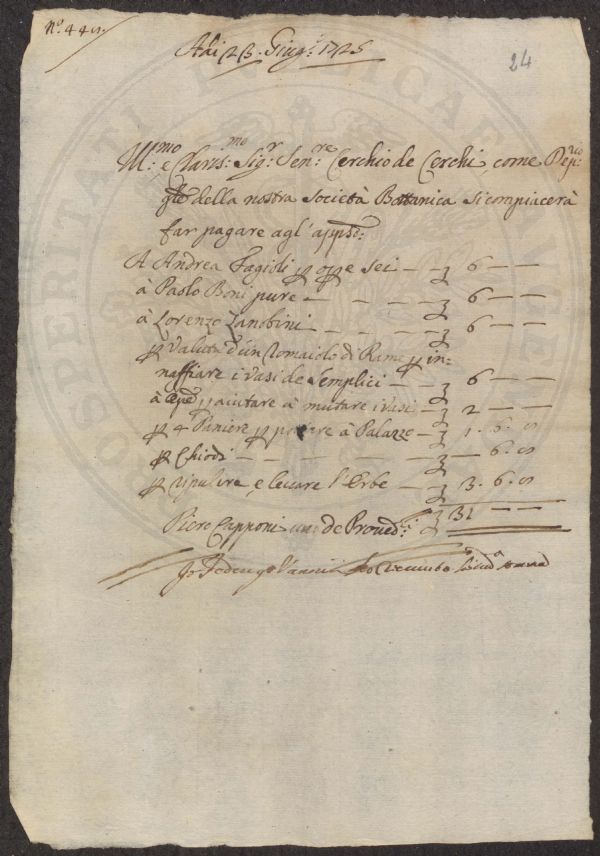 Adi 23. Giug.º 1725
24
Ill.mo e Clariss.mo Sig.r Sen.re Cerchio de Cerchi, come De
della nostra Società Bottanica si compiacerà
far pagare agl'app.ti:
A Andrea Fagioli p sei — 6 — —
à Paolo Boni pure — — — — 6 — —
à Lorenzo Zanobini — — — 6 — —
p Valuta d'un Romaiolo di Rame p in=
naffiare i vasi de Semplici — 6 — —
à p aiutare à mutare i vasi — 2 — —
p 4 Paniere p portare à Palazzo — 1. 6. 8
p Chiodi — — — — — — 6. 8
p ripulire, e levare l'Erbe — 3. 6. 8
Piero Capponi uno de Proved.ri 31 — —
Io Federigo ricevuto